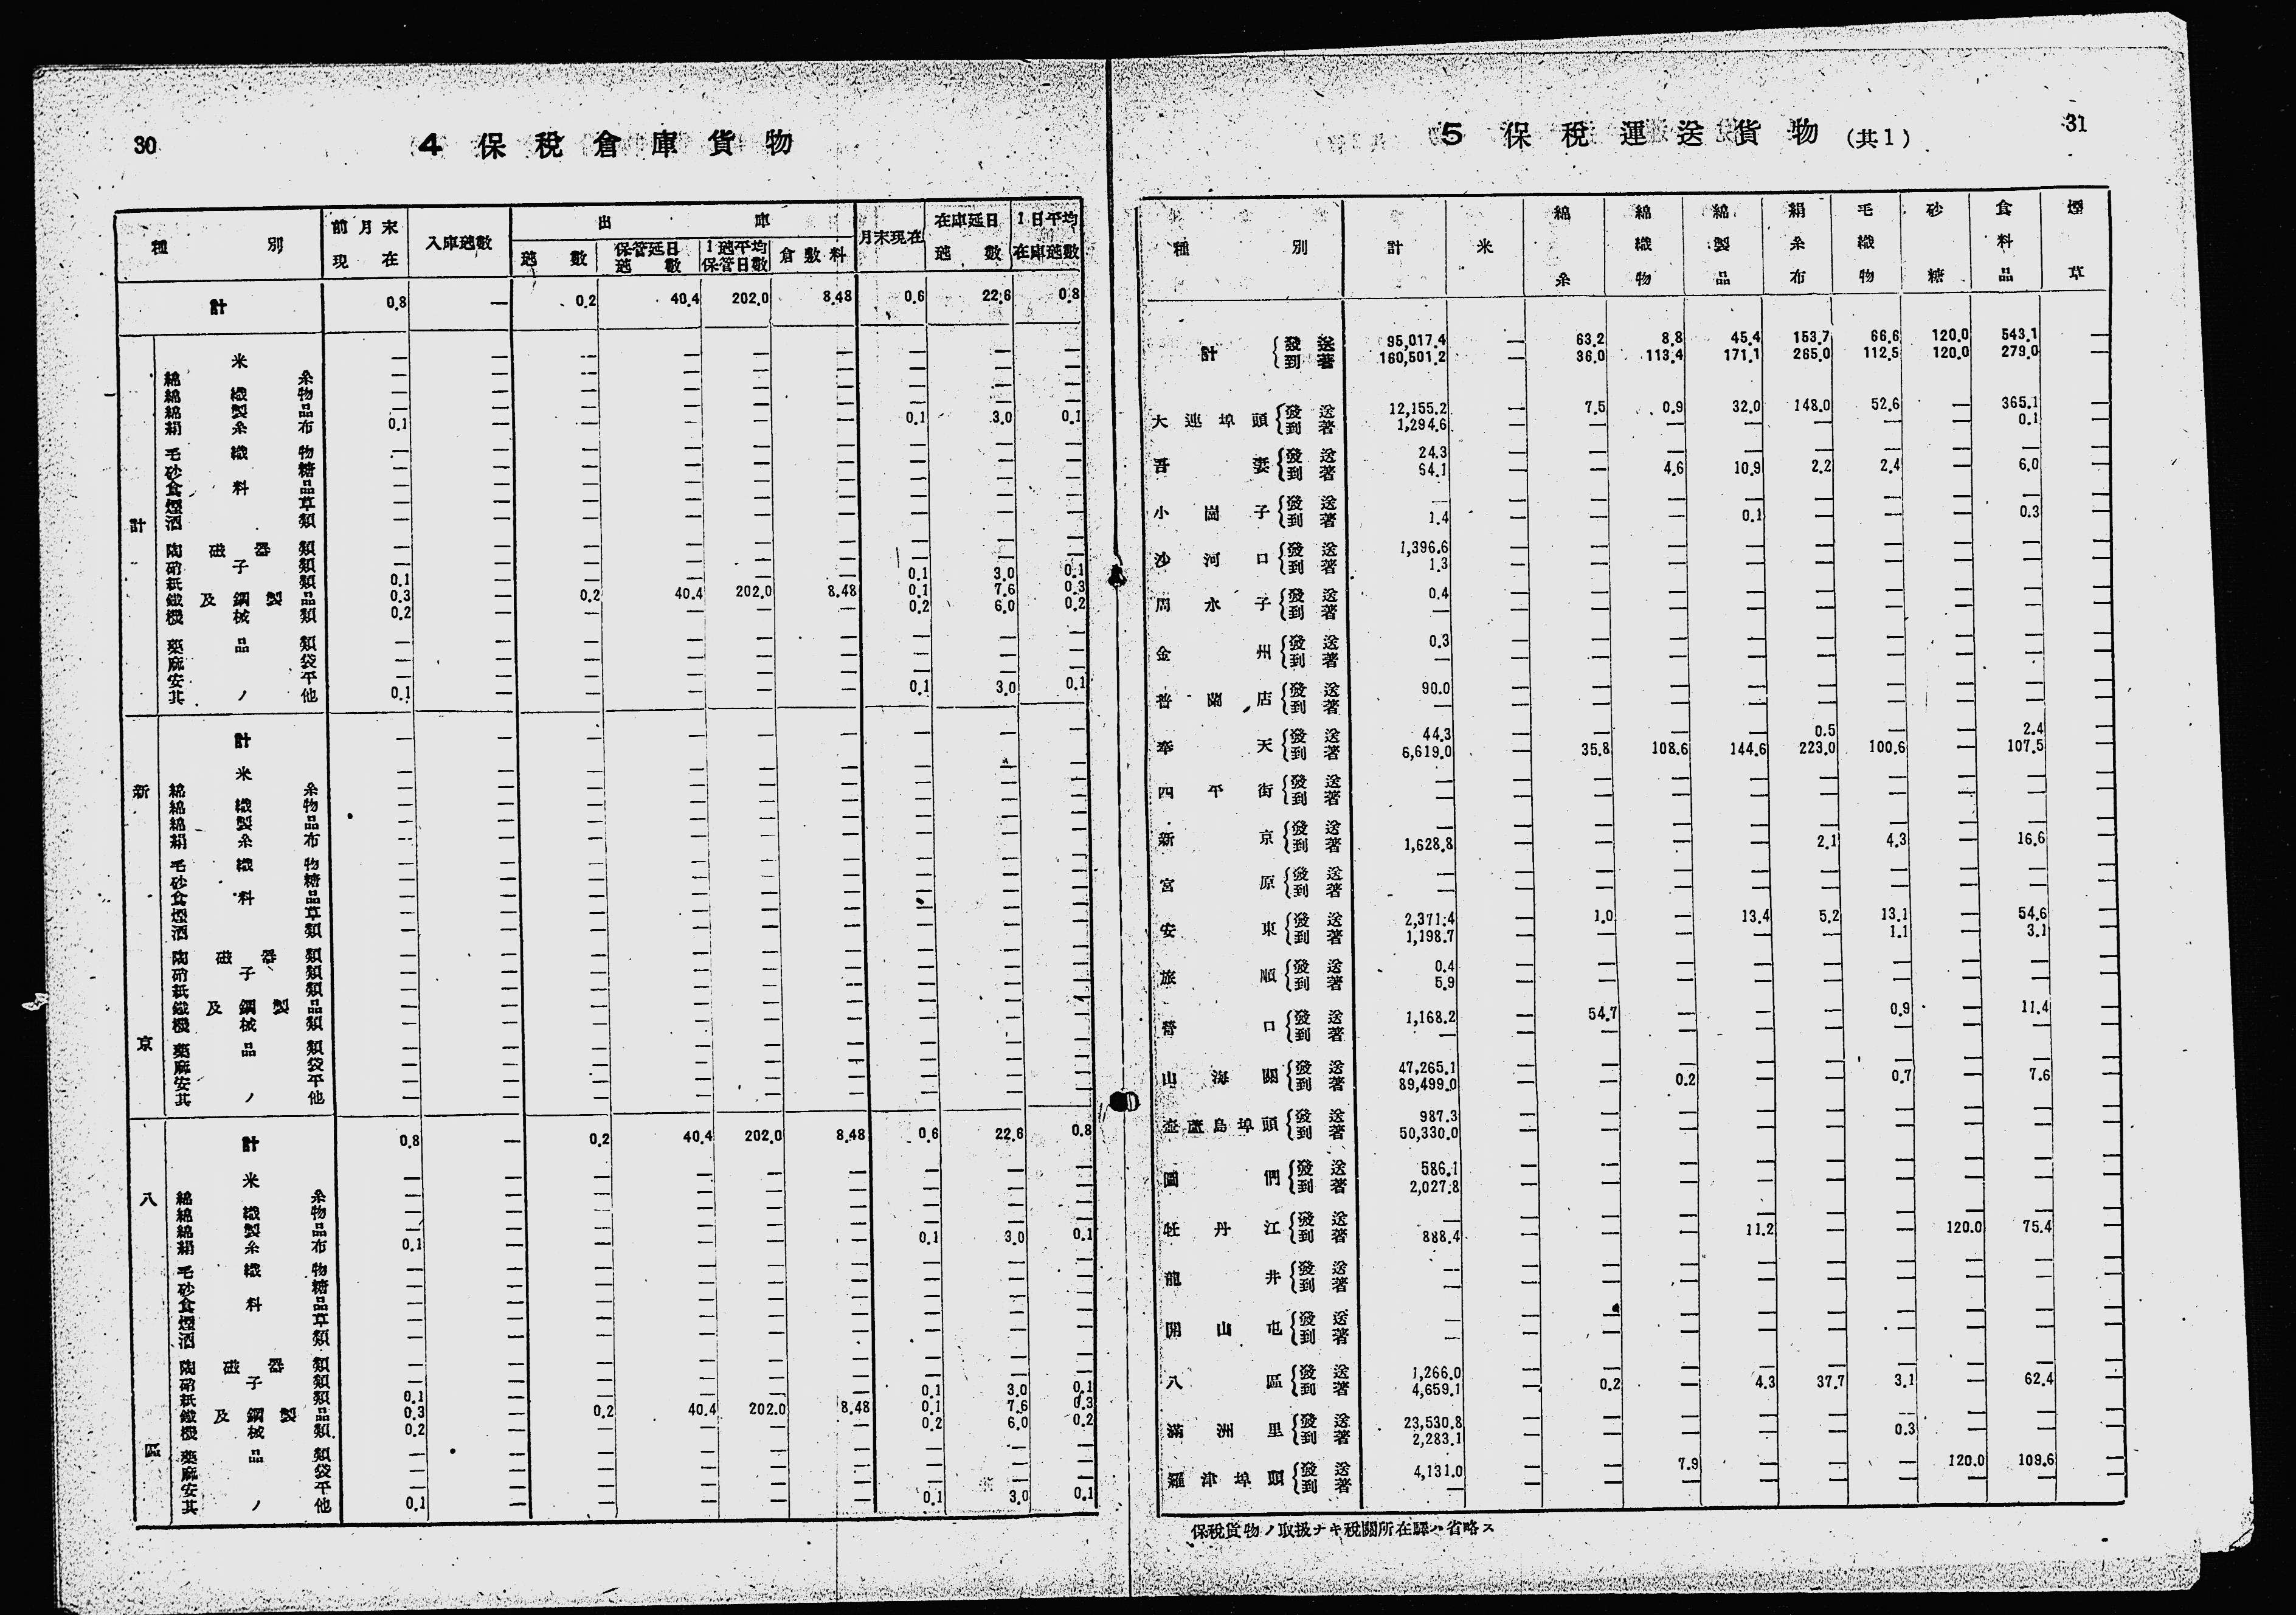 30
4 保税倉庫貨物
種別 前月末現在 入庫瓲數 出庫 月末現在 在庫延日瓲數 1日平均在庫瓲數
瓲數 保管延日瓲數 1瓲平均保管日數 倉敷料
計 0.8 — 0.2 40.4 202.0 8.48 0.6 22.6 0.8
計
米 — — — — — — — — —
綿糸 — — — — — — — — —
綿織物 — — — — — — — — —
綿製品 — — — — — — — — —
絹糸布 0.1 — — — — — 0.1 3.0 0.1
毛織物 — — — — — — — — —
砂糖 — — — — — — — — —
食料品 — — — — — — — — —
煙草 — — — — — — — — —
酒類 — — — — — — — — —
陶磁器類 — — — — — — — — —
硝子類 — — — — — — — — —
紙類 0.1 — — — — — 0.1 3.0 0.1
鐵及鋼製品 0.3 — 0.2 40.4 202.0 8.48 0.1 7.6 0.3
機械類 0.2 — — — — — 0.2 6.0 0.2
藥品類 — — — — — — — — —
麻袋 — — — — — — — — —
安平 — — — — — — — — —
其ノ他 0.1 — — — — — 0.1 3.0 0.1
新京
計 — — — — — — — — —
米 — — — — — — — — —
綿糸 — — — — — — — — —
綿織物 — — — — — — — — —
綿製品 — — — — — — — — —
絹糸布 — — — — — — — — —
毛織物 — — — — — — — — —
砂糖 — — — — — — — — —
食料品 — — — — — — — — —
煙草 — — — — — — — — —
酒類 — — — — — — — — —
陶磁器類 — — — — — — — — —
硝子類 — — — — — — — — —
紙類 — — — — — — — — —
鐵及鋼製品 — — — — — — — — —
機械類 — — — — — — — — —
藥品類 — — — — — — — — —
麻袋 — — — — — — — — —
安平 — — — — — — — — —
其ノ他 — — — — — — — — —
八區
計 0.8 — 0.2 40.4 202.0 8.48 0.6 22.6 0.8
米 — — — — — — — — —
綿糸 — — — — — — — — —
綿織物 — — — — — — — — —
綿製品 — — — — — — — — —
絹糸布 0.1 — — — — — 0.1 3.0 0.1
毛織物 — — — — — — — — —
砂糖 — — — — — — — — —
食料品 — — — — — — — — —
煙草 — — — — — — — — —
酒類 — — — — — — — — —
陶磁器類 — — — — — — — — —
硝子類 — — — — — — — — —
紙類 0.1 — — — — — 0.1 3.0 0.1
鐵及鋼製品 0.3 — 0.2 40.4 202.0 8.48 0.1 7.6 0.3
機械類 0.2 — — — — — 0.2 6.0 0.2
藥品類 — — — — — — — — —
麻袋 — — — — — — — — —
安平 — — — — — — — — —
其ノ他 0.1 — — — — — 0.1 3.0 0.1
31
5 保税運送貨物(共1)
種別 計 米 綿糸 綿織物 綿製品 絹糸布 毛織物 砂糖 食料品 煙草
計 發送 95,017.4 — 63.2 8.8 45.4 153.7 66.6 120.0 543.1 —
到著 160,501.2 — 36.0 113.4 171.1 265.0 112.5 120.0 279.0 —
大連埠頭 發送 12,155.2 — 7.5 0.9 32.0 148.0 52.6 — 365.1 —
到著 1,294.6 — — — — — — — 0.1 —
吾妻 發送 24.3 — — — — — — — — —
到著 54.1 — — 4.6 10.9 2.2 2.4 — 6.0 —
小崗子 發送 — — — — — — — — — —
到著 1.4 — — — 0.1 — — — 0.3 —
沙河口 發送 1,396.6 — — — — — — — — —
到著 1.3 — — — — — — — — —
周水子 發送 0.4 — — — — — — — — —
到著 — — — — — — — — — —
金州 發送 0.3 — — — — — — — — —
到著 — — — — — — — — — —
普蘭店 發送 90.0 — — — — — — — — —
到著 — — — — — — — — — —
奉天 發送 44.3 — — — — 0.5 — — 2.4 —
到著 6,619.0 — 35.8 108.6 144.6 223.0 100.6 — 107.5 —
四平街 發送 — — — — — — — — — —
到著 — — — — — — — — — —
新京 發送 — — — — — — — — — —
到著 1,628.8 — — — — 2.1 4.3 — 16.6 —
宮原 發送 — — — — — — — — — —
到著 — — — — — — — — — —
安東 發送 2,371.4 — 1.0 — 13.4 5.2 13.1 — 54.6 —
到著 1,198.7 — — — — — 1.1 — 3.1 —
旅順 發送 0.4 — — — — — — — — —
到著 5.9 — — — — — — — — —
營口 發送 1,168.2 — 54.7 — — — 0.9 — 11.4 —
到著 — — — — — — — — — —
山海關 發送 47,265.1 — — — — — — — — —
到著 89,499.0 — — 0.2 — — 0.7 — 7.6 —
壺蘆島埠頭 發送 987.3 — — — — — — — — —
到著 50,330.0 — — — — — — — — —
圖們 發送 586.1 — — — — — — — — —
到著 2,027.8 — — — — — — — — —
牡丹江 發送 — — — — — — — — — —
到著 888.4 — — — 11.2 — — 120.0 75.4 —
龍井 發送 — — — — — — — — — —
到著 — — — — — — — — — —
開山屯 發送 — — — — — — — — — —
到著 — — — — — — — — — —
八區 發送 1,266.0 — — — — — — — — —
到著 4,659.1 — 0.2 — 4.3 37.7 3.1 — 62.4 —
滿洲里 發送 23,530.8 — — — — — — — — —
到著 2,283.1 — — — — — 0.3 — — —
羅津埠頭 發送 4,131.0 — — 7.9 — — — 120.0 109.6 —
到著 — — — — — — — — — —
保税貨物ノ取扱ナキ税關所在驛ハ省略ス